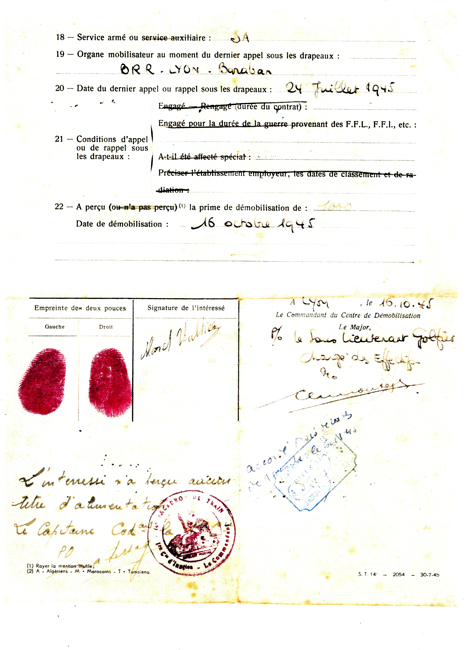 18 — Service armé ou service auxiliaire : SA
19 — Organe mobilisateur au moment du dernier appel sous les drapeaux :
BRR. LYON.
20 — Date du dernier appel ou rappel sous les drapeaux : 24 Juillet 1945
Engagé — Rengagé (durée du contrat) :
Engagé pour la durée de la guerre provenant des F.F.L., F.F.I., etc. :
21 — Conditions d'appel
ou de rappel sous
les drapeaux :
A-t-il été affecté spécial :
Préciser l'établissement employeur, les dates de classement et de ra-
diation :
22 — A perçu (ou n'a pas perçu) (1) la prime de démobilisation de :
Date de démobilisation : 16 octobre 1945
A Lyon, le 16.10.45
Le Commandant du Centre de Démobilisation
Le Major,
P/o le Sous Lieutenant
chargé des Effectifs
Empreinte des deux pouces
Gauche Droit
Signature de l'intéressé
L'interressé n'a perçu aucun
titre d'alimentation
Le Capitaine
PO
(1) Rayer la mention inutile.
(2) A - Algériens - M - Marocains - T - Tunisiens.
S. T. 14 — 2054 — 30-7-45